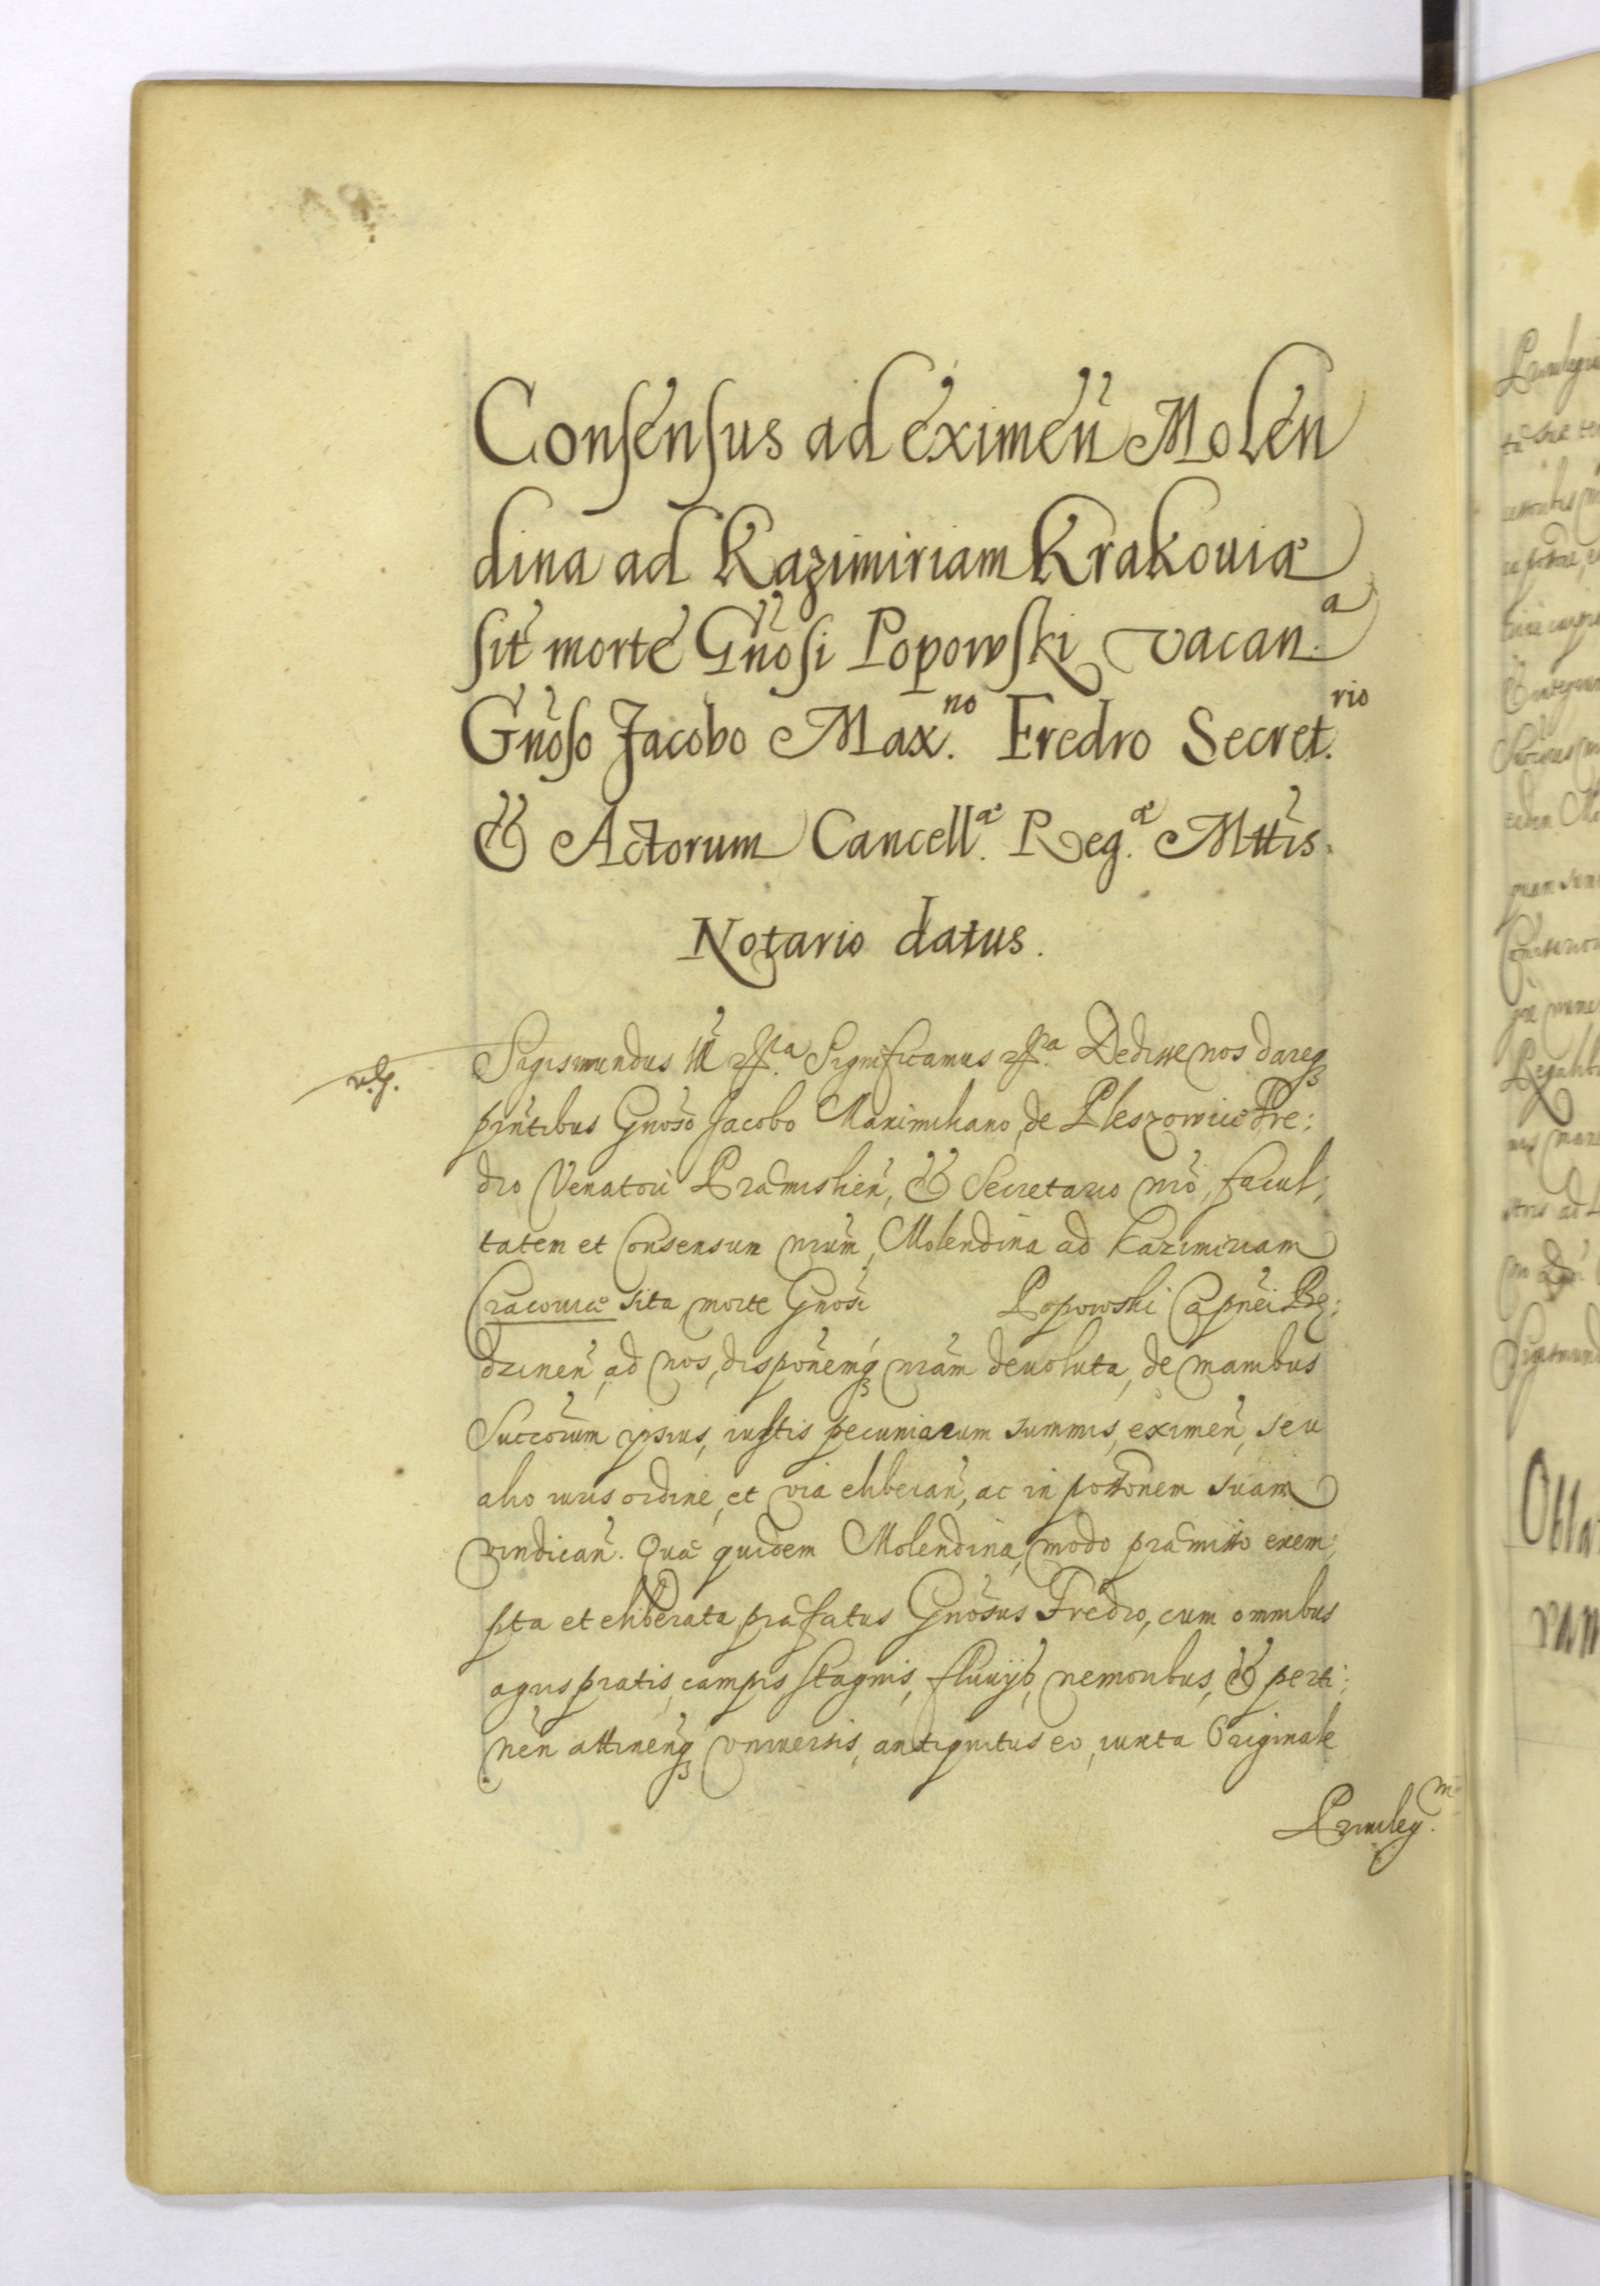 Consensus ad eximeñ Molen
dina ad Kazimiriam Krakouiæ
sit morte Gñosi Popowski vacan.ᵃ
Gñoso Jacobo Max.ⁿᵒ Fredro Secret.ʳⁱᵒ
& Actorum Cancell.æ Reg.æ Mttis.
Notario datus.
Sigismundus III Significamus Dedisse nos dareq
pñtibus Gñoso Jacobo Maximiliano, de Pleszowice Fre:
dro Venatori Præmislieñ, & Secretario nrõ, facul:
tatem et Consensum nrũm, Molendina ad Kazimiriam
Cracouiæ sita morte Gnosi Popowski Capnẽi Bę:
dzineñ, ad nos, disponẽmq nrãm deuoluta, de manibus
Succorũm ipsius, iustis pecuniarum summis, eximeñ, seu
alio iuris ordine, et via eliberañ, ac in possonem suam
vindicañ. Quæ quidem Molendina, modo præmisso exem:
pta et eliberata præfatus Gnosus Fredro, cum omnibus
agris pratis, campis stagnis, fluuijs, nemoribus, & perti:
neñ attineñq vniuersis, antiquitus eo, iuxta Originale
Priuileg.ᵐ